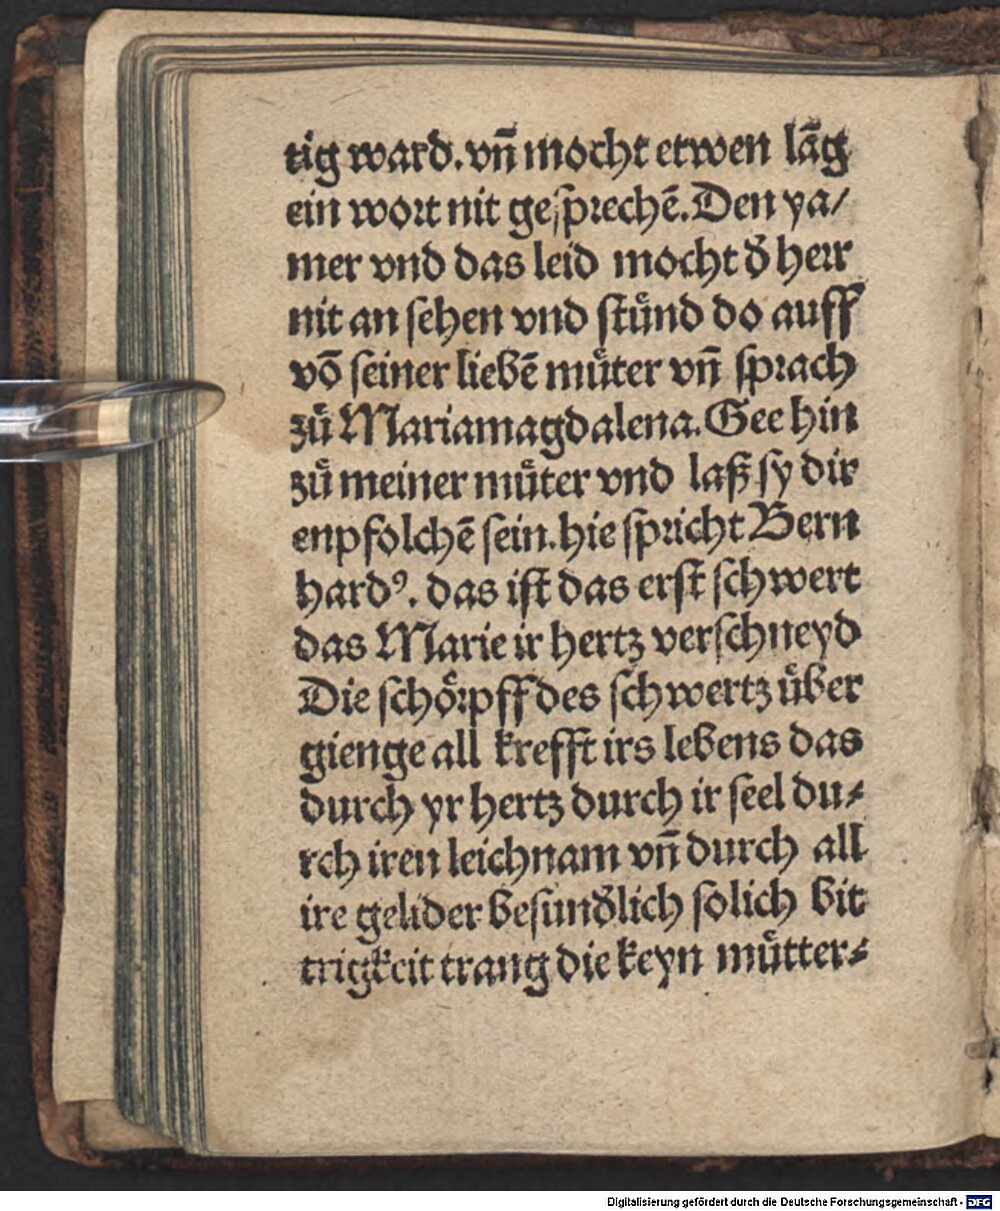 tig ward. vn̄ mocht etwen lāg
ein wort nit gesprechē. Den ya/
mer vnd das leid mocht d̕ herr
nit an sehen vnd stuͤnd do auff
vō seiner liebē muͤter vn̄ sprach
zuͤ Mariamagdalena. Gee hin
zuͤ meiner muͤter vnd laß sy dir
enpfolchē sein. hie spricht Bern
hardꝰ. das ist das erst schwert
das Marie ir hertz verschneyd
Die schoͤrpff des schwertz uͤber
gienge all krefft irs lebens das
durch yr hertz durch ir seel du⸗
rch iren leichnam vn̄ durch all
ire gelider besund̕lich solich bit
trigkeit trang die keyn muͤtter⸗
Digitalisierung gefördert durch die Deutsche Forschungsgemeinschaft - DFG